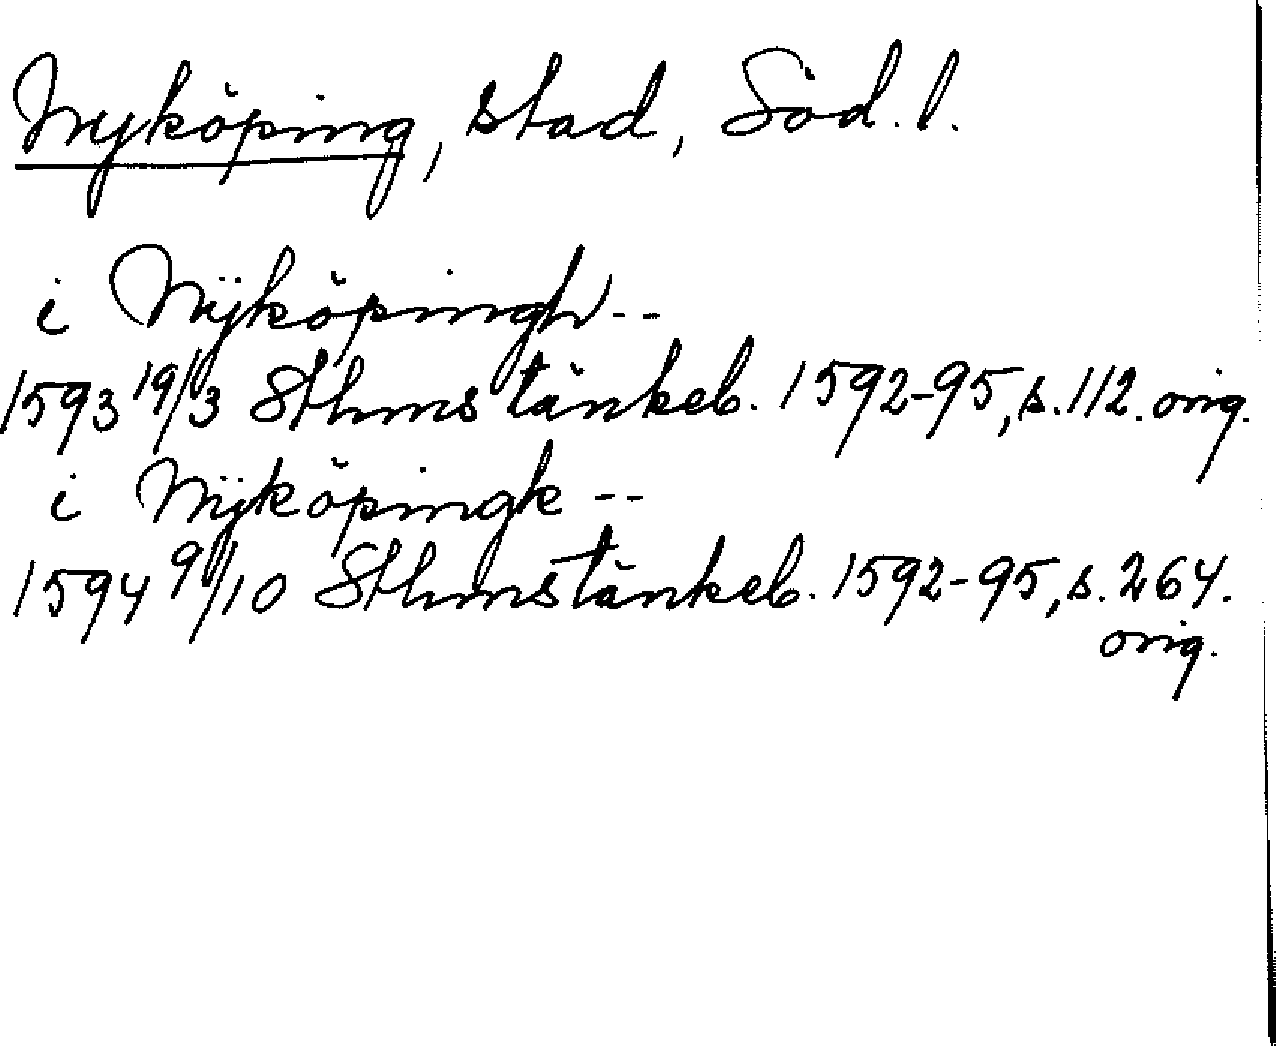 Nyköping, stad, Söd. l.
i Nÿköpingh --
1593 19/3 Sthms tänkeb. 1592-95, s. 112. orig.
i Nÿköpingk --
1594 9/10 Sthms tänkeb. 1592-95, s. 264.
orig.